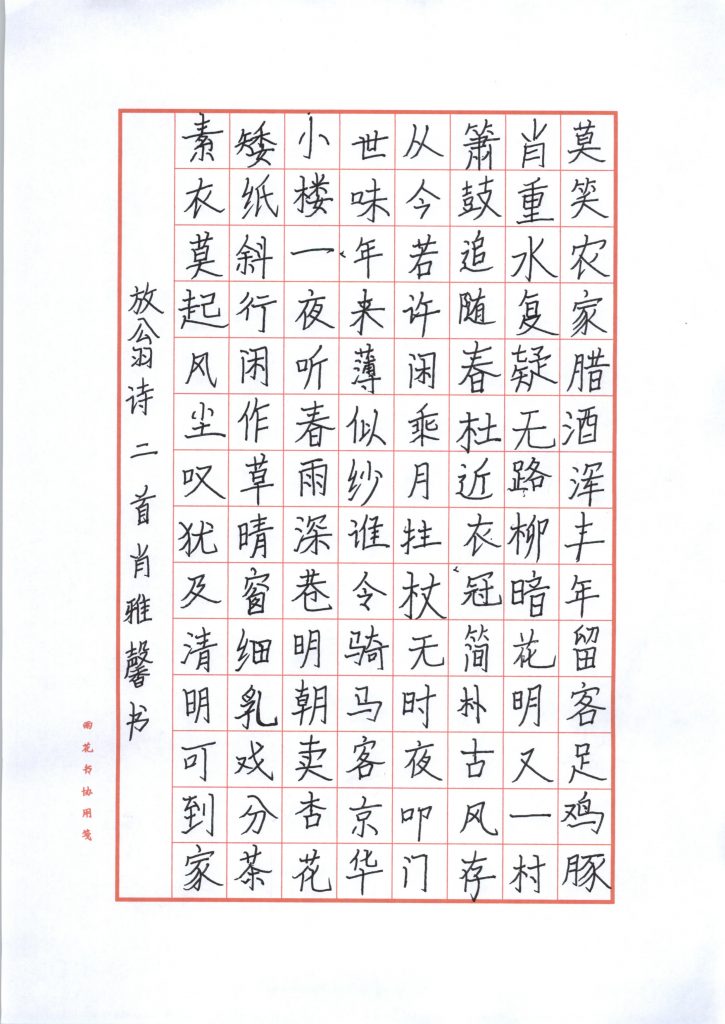 莫笑农家腊酒浑丰年留客足鸡豚
肖重水复疑无路柳暗花明又一村
箫鼓追随春社近衣冠简朴古风存
从今若许闲乘月拄杖无时夜叩门
世味年来薄似纱谁令骑马客京华
小楼一夜听春雨深巷明朝卖杏花
矮纸斜行闲作草晴窗细乳戏分茶
素衣莫起风尘叹犹及清明可到家
放翁诗二首肖雅馨书
雨花书协用笺